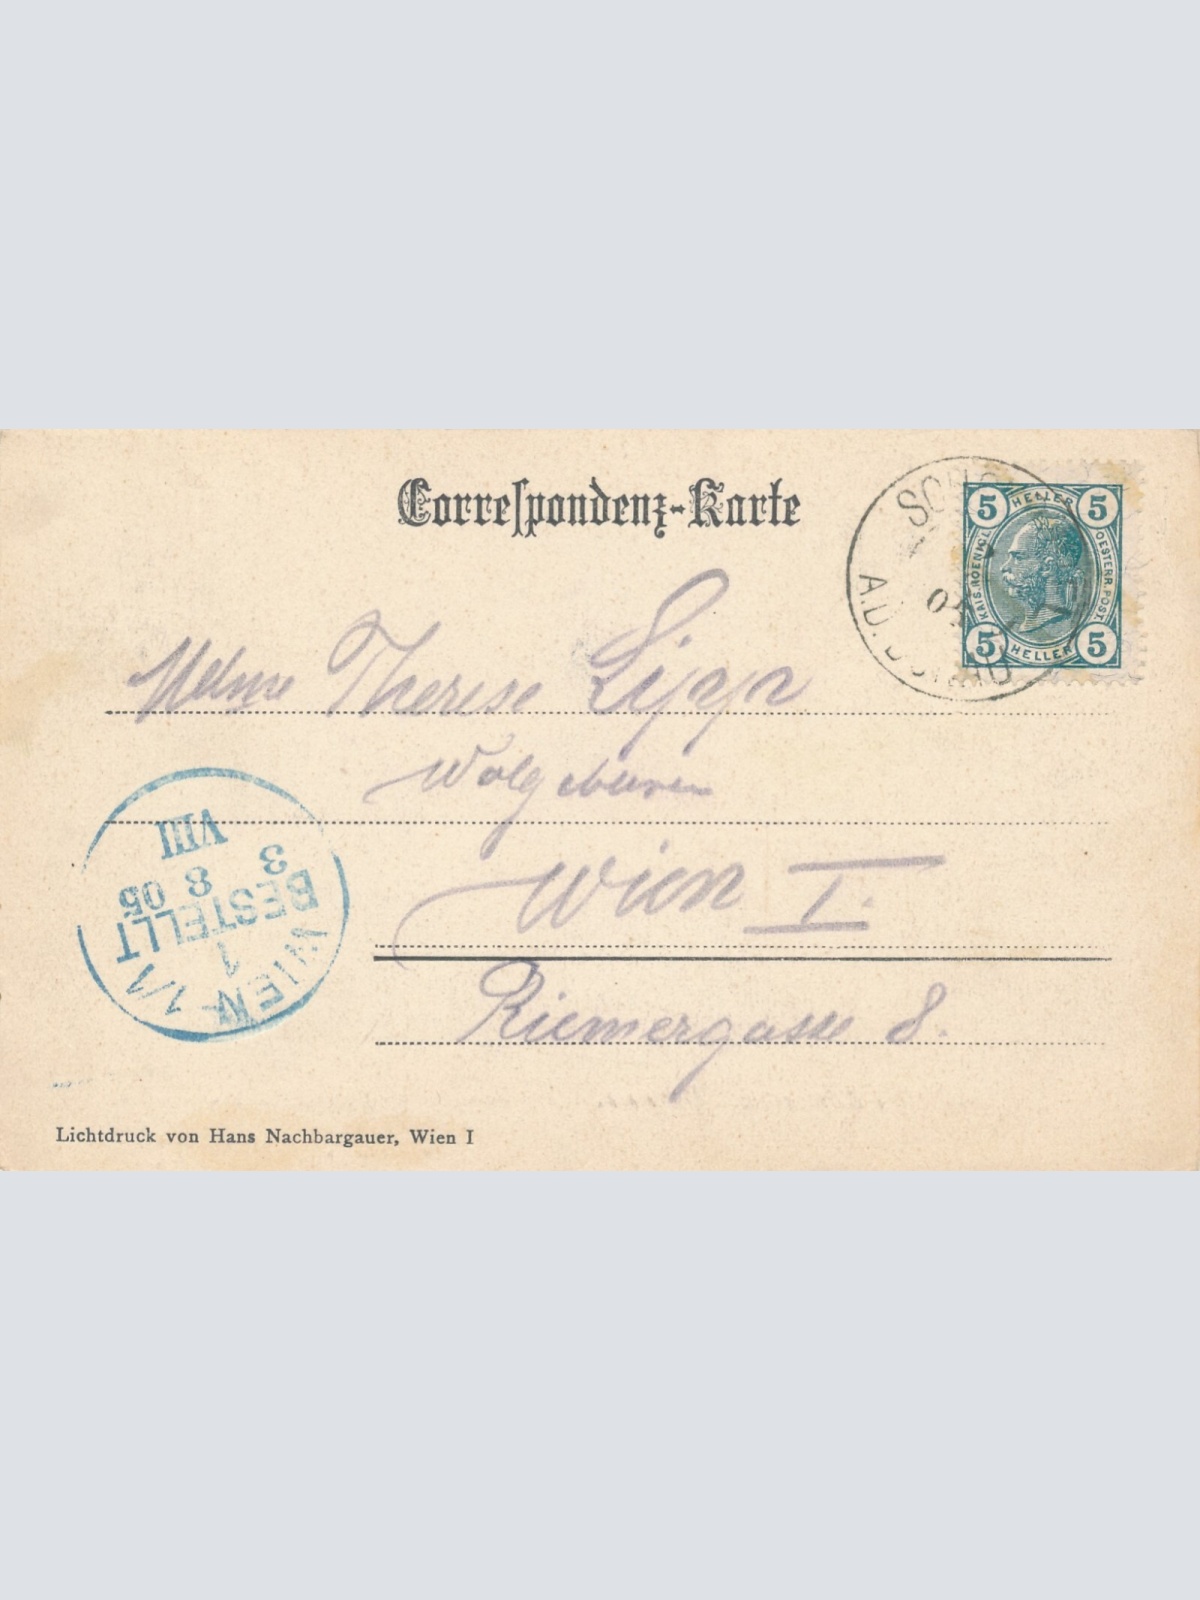 Correspondenz-Karte
5 HELLER 5
KAIS. KOENIGL.
OESTERR. POST.
5 HELLER 5
A.D.
Therese Lipp
Wien I.
Riemergasse 8.
WIEN 1/1
1
BESTELLT
3 8 05
VIII
Lichtdruck von Hans Nachbargauer, Wien I